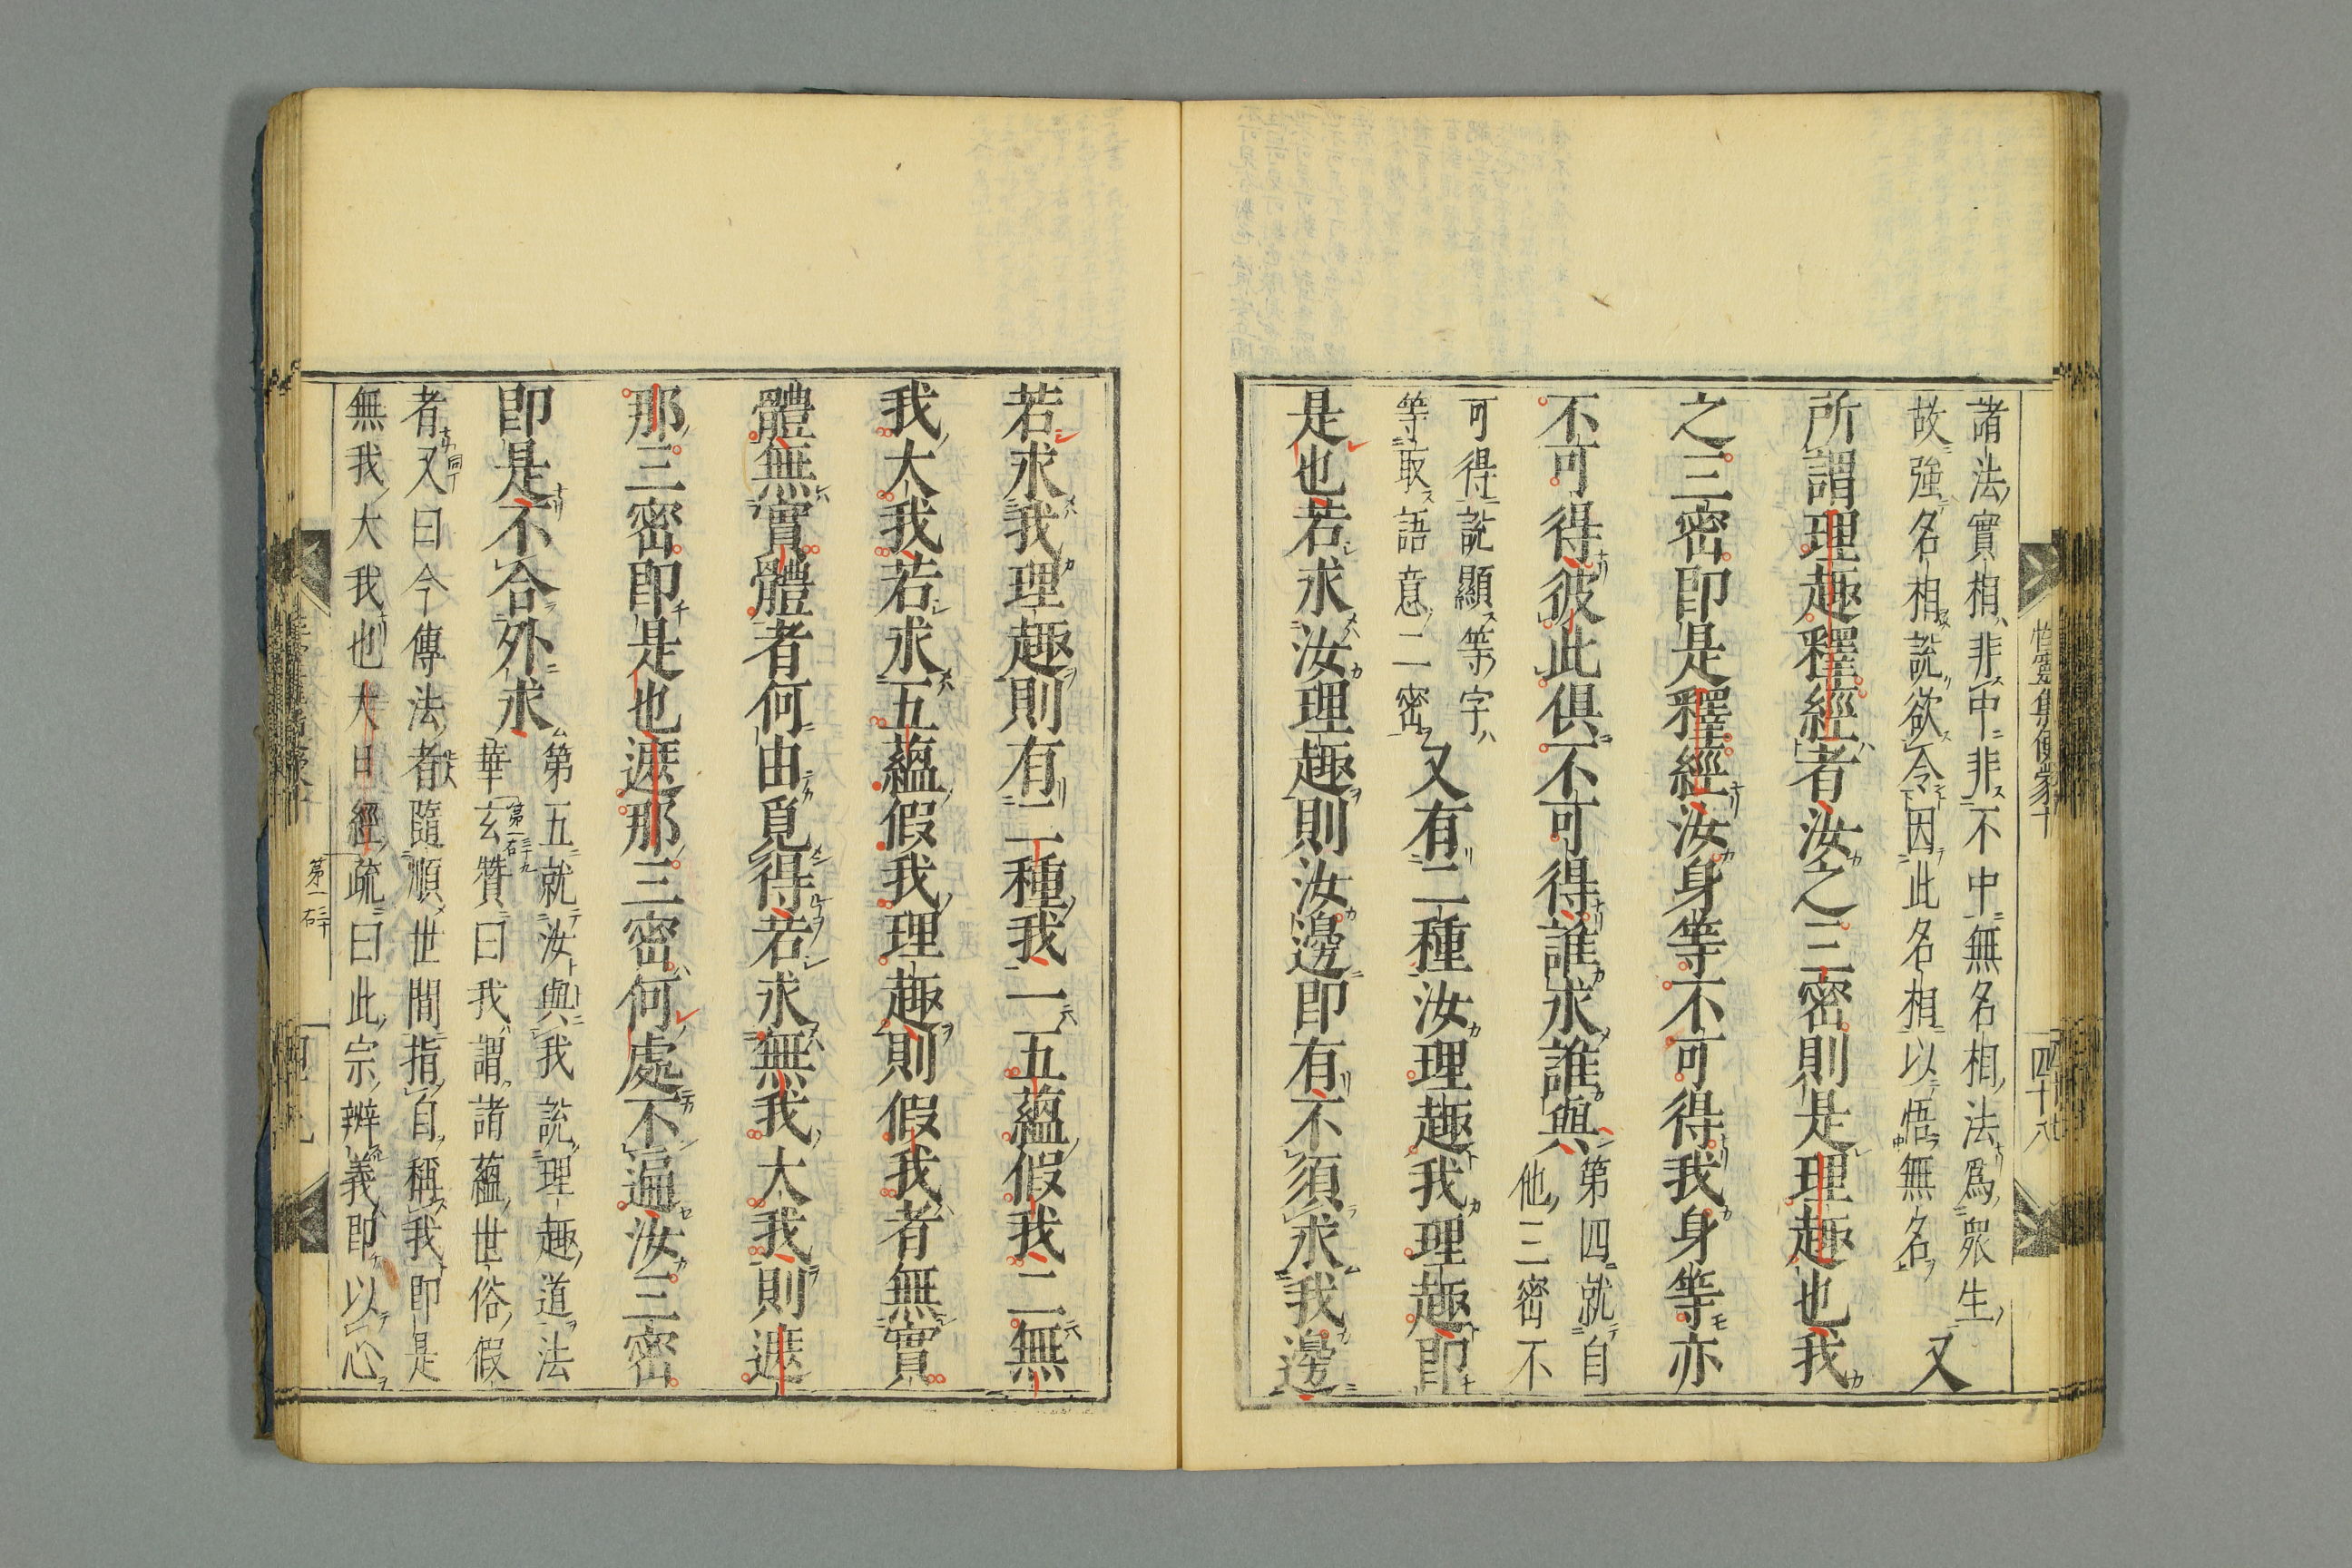 諸法實相非中非不中無名相法爲衆生
故強名相說欲令因此名相以悟無名
又
所謂理趣釋經者汝之三密則是理趣也我
之三密即是釋經汝身等不可得我身等亦
不可得彼此俱不可得誰求誰與
第四就自
他三密不
可得說顯等字
等取語意二密
又有二種汝理趣我理趣即
是也若求汝理趣則汝邊即有不須求我邊
性靈集便蒙十
四十八
若求我理趣則有二種我一五蘊假我二無
我大我若求五蘊假我理趣則假我者無實
體無實體者何由覓得若求無我大我則遮
那三密即是也遮那三密何處不遍汝三密
即是不合外求
第五就汝與我說理趣道法
華玄贊曰我謂諸蘊世俗假
第一
者又曰今傳法者隨順世間指自稱我即是
無我大我也大日經疏曰此宗辨義即以心
第一